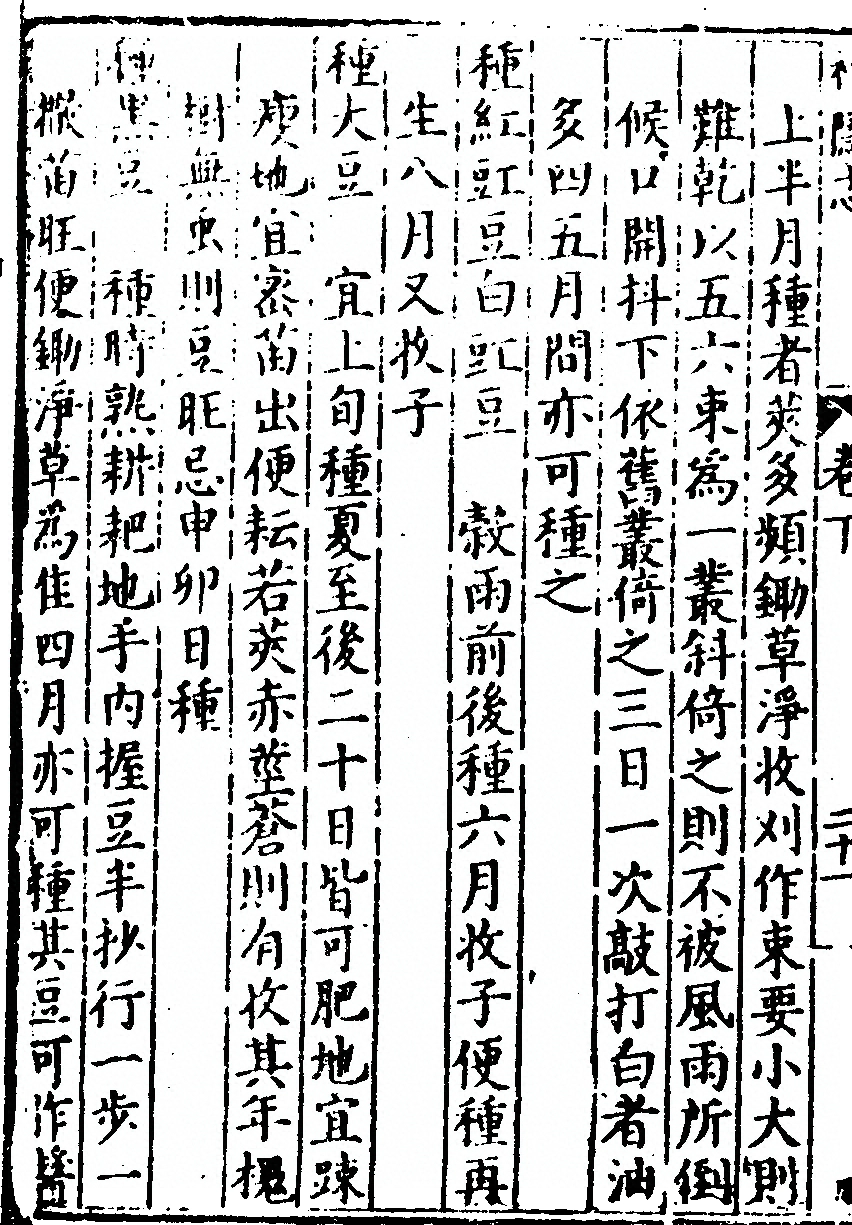 上半月種者莢多頻鋤草淨收刈作束要小大則
難乾以五六束為一叢斜倚之則不被風雨所倒
候口開抖下依舊叢倚之三日一次敲打白者油
多四五月間亦可種之
種紅豇豆白豇豆　穀雨前後種六月收子便種再
生八月又收子
種大豆　宜上旬種夏至後二十日皆可肥地宜踈
瘦地宜宻苗出便耘若莢赤莖蒼則有收其年槐
樹無虫則豆旺忌申卯日種
種黑豆　種時熟耕耙地手內握豆半抄行一步一
撒苗旺便鋤淨草為佳四月亦可種其豆可作醬
卷下
二十一